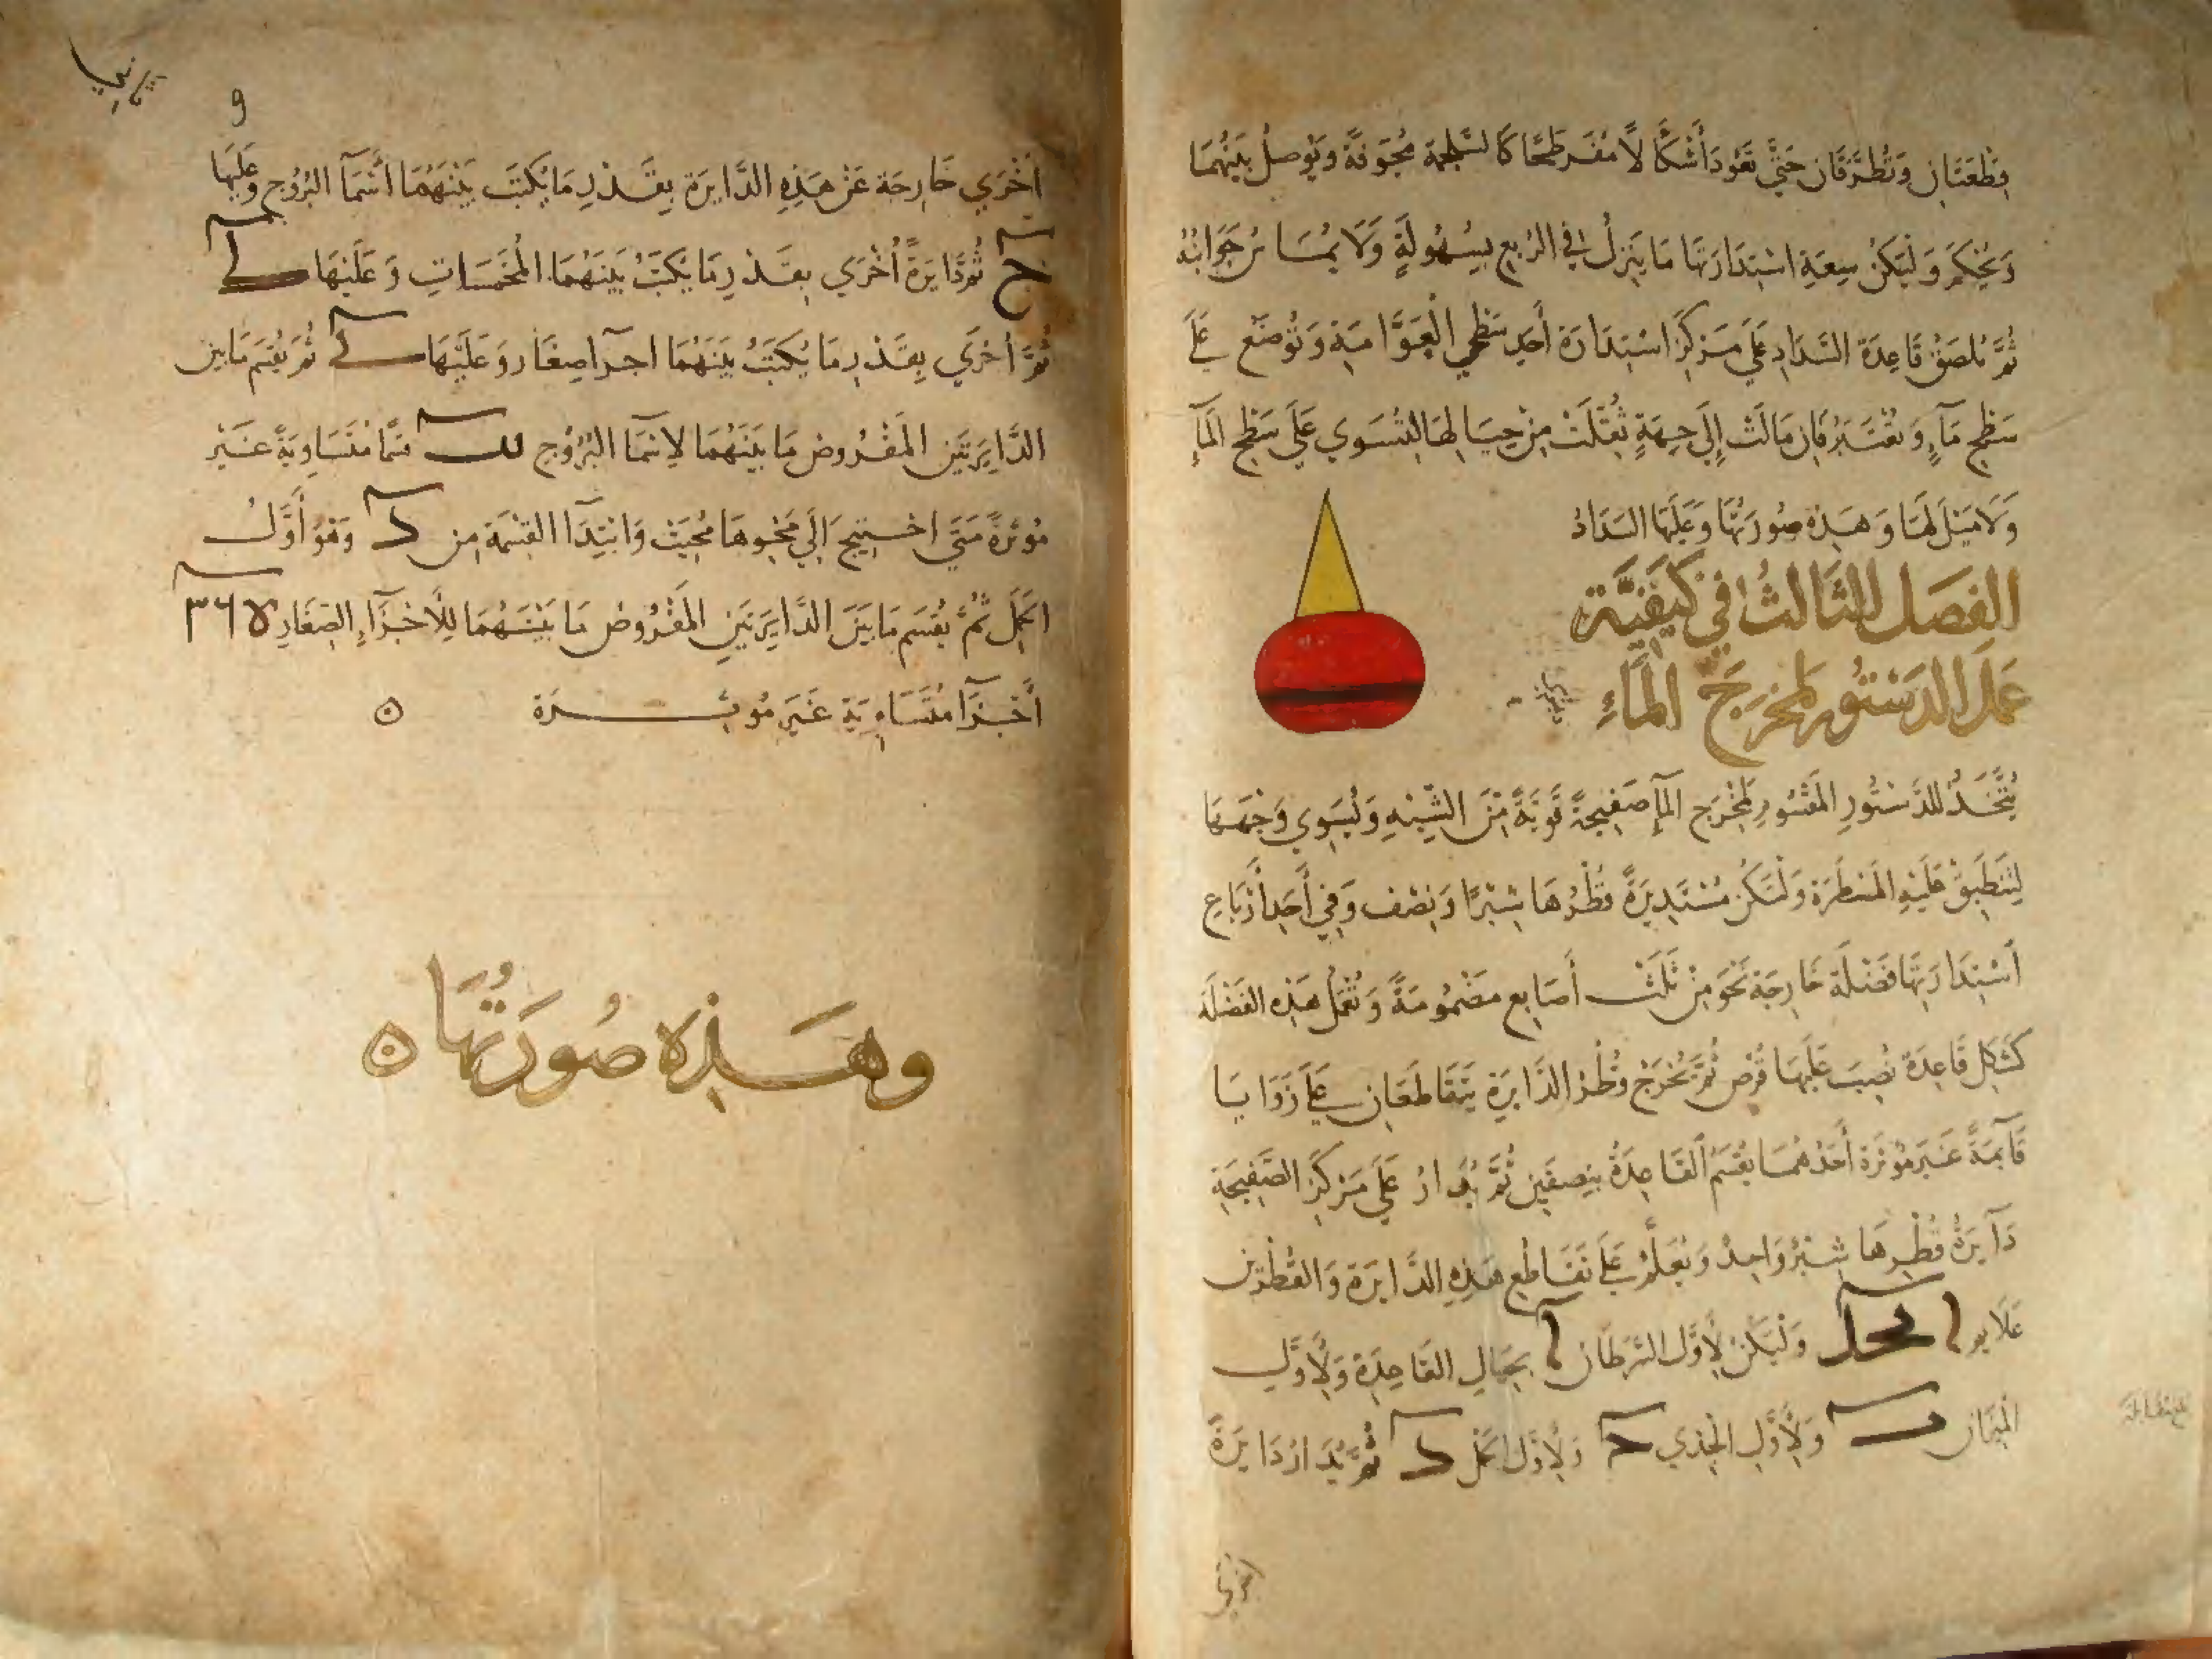 قطعتان وتطرقان حتى تعود أشكالا مفرطحا كالسلجمة مجوفة ويوصل بينهما
ويحكم وليكن سعة استدارتها ما ينزل في الربع بسهولة ولا يماس جوانبه
ثم تلصق قاعدة السداد على مركز استدارة أحد سطحي العوامة وتوضع على
سطح ماء وتعتبر فان مالت إلى جهة ثقلت من حيالها لتستوي على سطح الماء
ولا ميل لها وهذه صورتها وعليها السداد
الفصل الثالث في كيفية
عمل الدستور لمخرج الماء
يتخذ للدستور المقسوم لمخرج الماء صفيحة قوية من الشبه ويسوى وجهها
لتنطبق عليه المسطرة ولتكن مستديرة قطرها شبرا ونصف وفي أحد أرباع
استدارتها فضلة خارجة نحو من ثلث أصابع مضمومة وتعمل هذه الفضلة
كشكل قاعدة نصب عليها قرص ثم يخرج قطر الدايرة يتقاطعان على زوايا
قآيمة غير مؤثرة أحدهما يقسم القاعدة بنصفين ثم يدار على مركز الصفيحة
دآيرة قطرها شبر واحد ويعلم على تقاطع هذه الدايرة والقطرين
علايم ا ب ح د وليكن لأول السرطان ا بحيال القاعدة ولأول
الميزان ب ولأول الجدي ح ولأول الحمل د ثم يدار دايرة
أخرى
و
أخرى خارجة عن هذه الدايرة بقدر ما يكتب بينهما أسمآ البروج وعليها
ح ثم دايرة أخرى بقدر ما يكتب بينهما المخمسات وعليها
ثم أخرى بقدر ما يكتب بينهما اجزآ صغار وعليها ثم يقسم ما بين
الدايرتين المفروض ما بينهما لاسما البروج قسما متساوية غير
مؤثرة متى احتيج الى محوها محيت وابتدآ القسمة من د وهو أول
الحمل ثم يقسم ما بين الدايرتين المفروض ما بينهما للأجزآء الصغار
أجزآ متساوية غير مؤثرة ه
وهذه صورتها ه